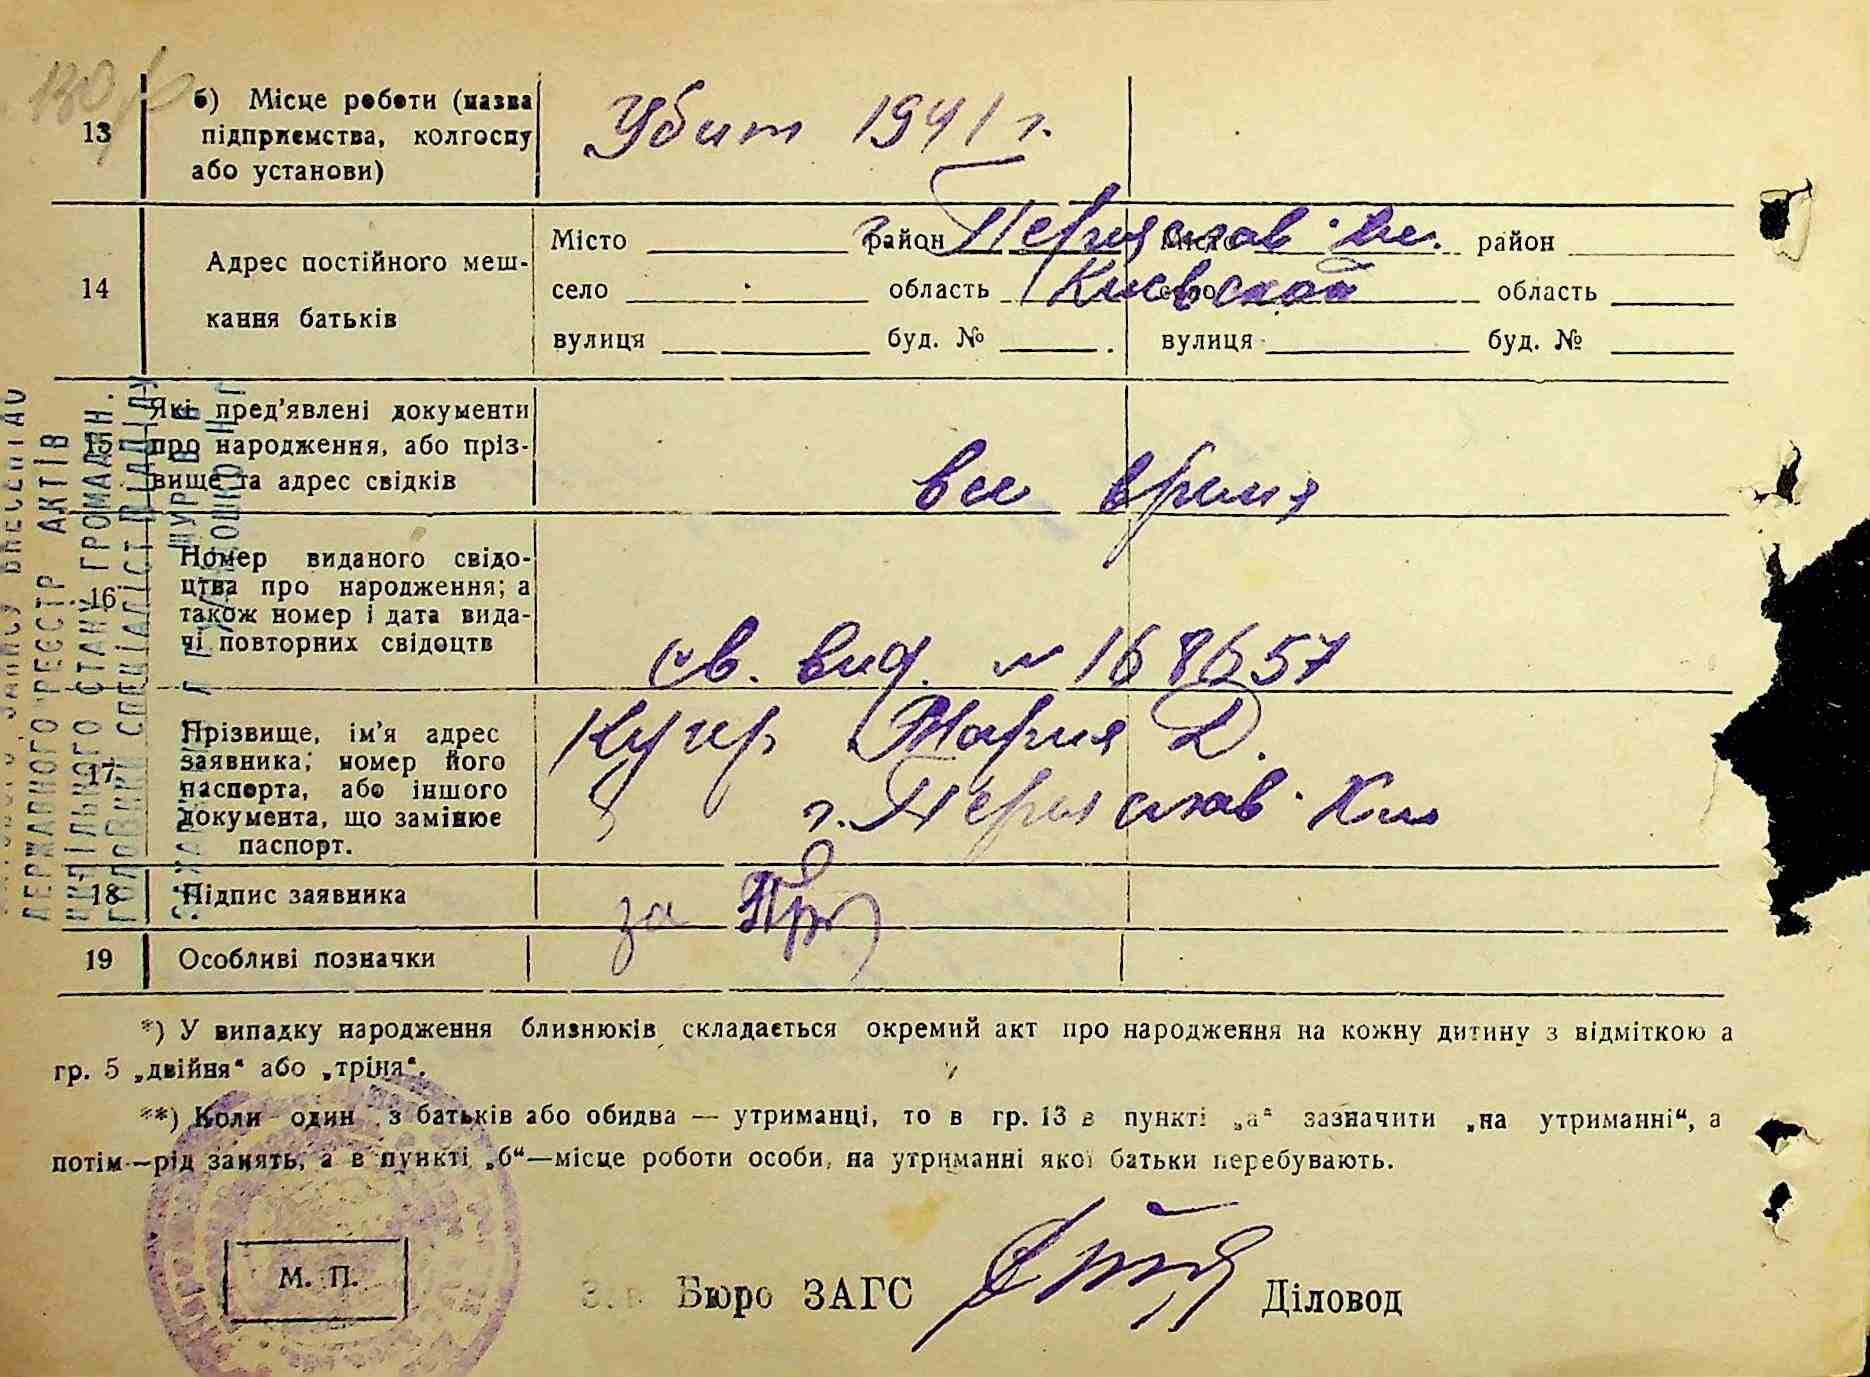 13
б) Місце роботи (назва
підприємства, колгоспу
або установи)
Убит 1941 г.
14
Адрес постійного меш-
кання батьків
Місто район Місто район
г. Переяслав-Хм.
село область село область
Киевской
вулиця буд. № вулиця буд. №
15
Які пред'явлені документи
про народження, або пріз-
вище та адрес свідків
все время
16
Номер виданого свідо-
цтва про народження; а
також номер і дата вида-
чі повторних свідоцтв
св. выд. № 168657
17
Прізвище, ім'я адрес
заявника, номер його
паспорта, або іншого
документа, що замінює
паспорт.
Мария Д.
г. Переяслав-Хм
18
Підпис заявника
за
19
Особливі позначки
*) У випадку народження близнюків складається окремий акт про народження на кожну дитину з відміткою а
гр. 5 „двійня“ або „тріпа“.
**) Коли один з батьків або обидва — утриманці, то в гр. 13 в пункті „а“ зазначити „на утриманні“, а
потім—рід занять, а в пункті „б“—місце роботи особи, на утриманні якої батьки перебувають.
М. П.
Зав Бюро ЗАГС Діловод
ДЕРЖАВНОГО РЕЄСТР АКТІВ
ЦИВІЛЬНОГО СТАНУ ГРОМАДЯН.
ГОЛОВНИЙ СПЕЦІАЛІСТ ВІДДІЛУ